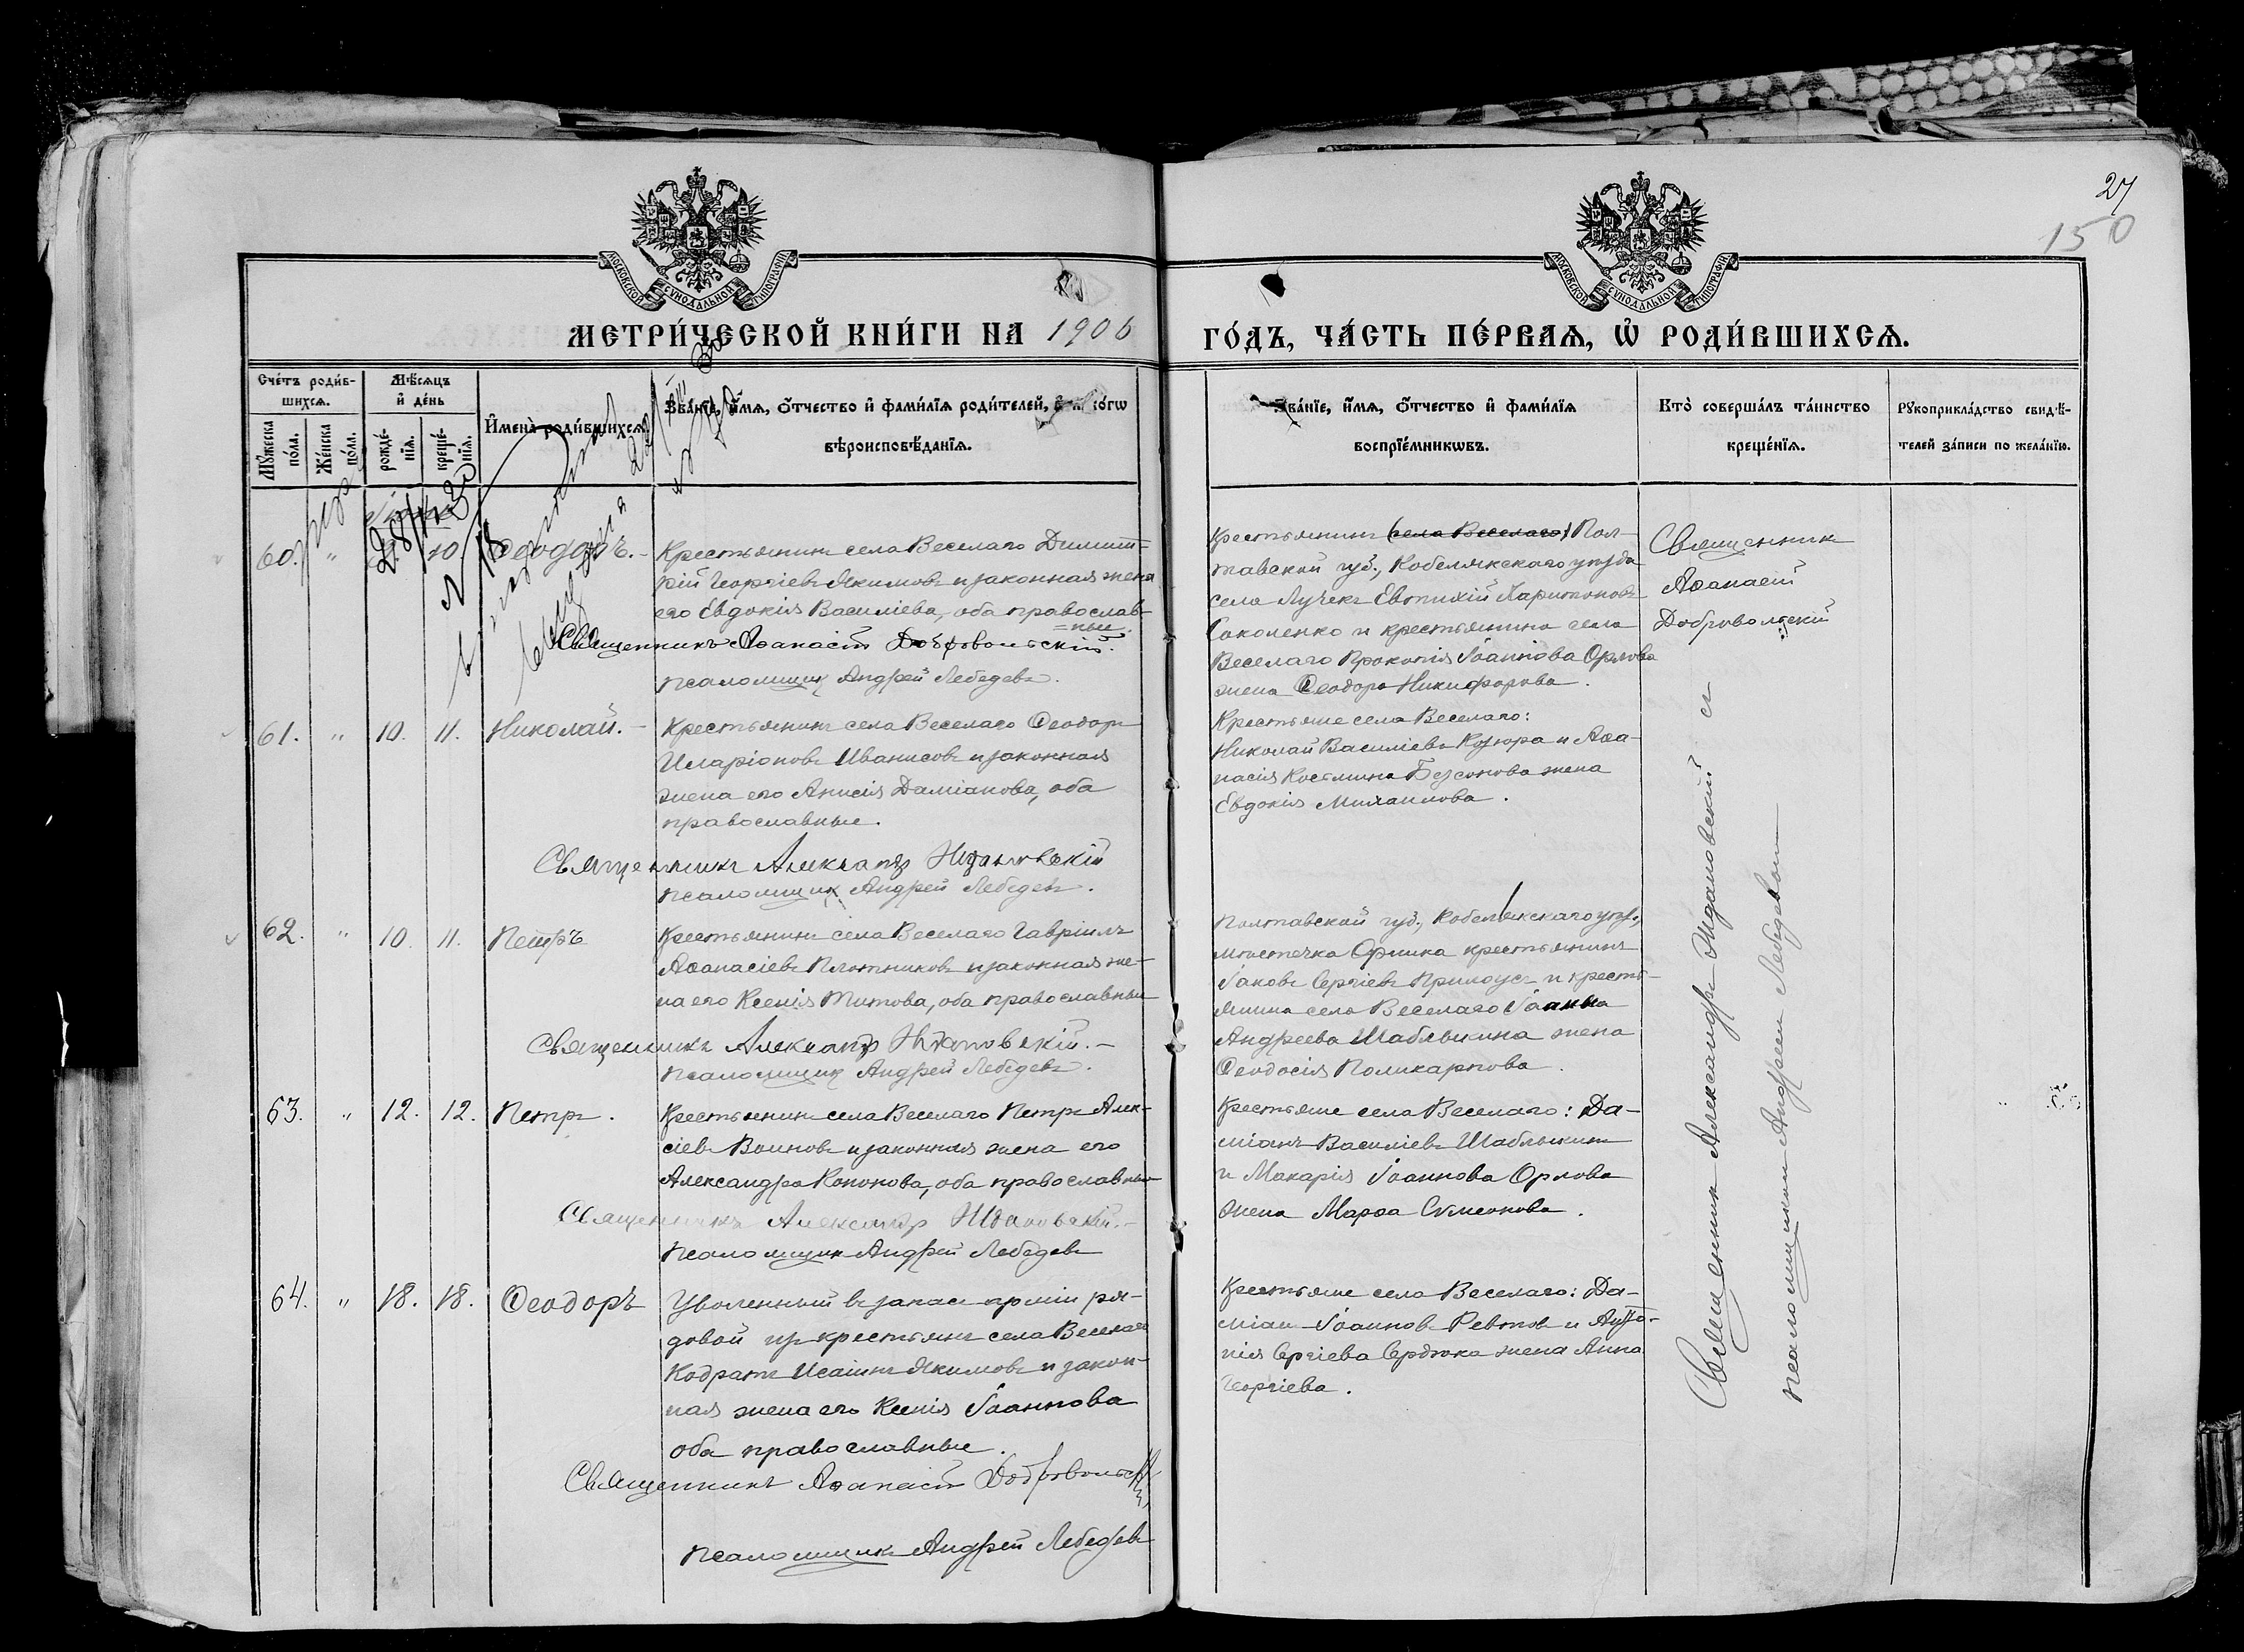 27
150
МОСКОВСКОЙ СѴНОДАЛЬНОЙ ТИПОГРАФІИ
МОСКОВСКОЙ СѴНОДАЛЬНОЙ ТИПОГРАФІИ
МЕТРИ́ЧЕСКОЙ КНИ́ГИ НА 1906
ГО́ДЪ, ЧА́СТЬ ПЕ́РВАѦ, Ѽ РОДИ́ВШИХСѦ.
Сче́тъ роди́в-
шихсѧ.
Мꙋ́жеска по́ла.
Же́нска по́ла.
Мѣ́сѧцъ
и҆ де́нь
рожде́-
нїѧ.
креще́-
нїѧ.
И҆мена̀ роди́вшихсѧ.
Зва́нїе, и҆́мѧ, ѻ҆́тчество и҆ фами́лїѧ роди́телей, и҆
вѣроисповѣ́данїѧ.
Зва́нїе, и҆́мѧ, ѻ҆́тчество и҆ фами́лїѧ
воспрїе́мникѡвъ.
Кто̀ соверша́лъ та́инство
креще́нїѧ.
Рꙋкоприкла́дство свидѣ́-
телей за́писи по жела́нїю.
60. " 10 Ѳеодоръ. -
Крестьянинъ села Веселаго Димит-
рій Георгіевъ Якимовъ и законная жена
его Евдокія Василіева, оба православ-
=ные.
Священникъ Аѳанасій Добровольскій.
псаломщикъ Андрей Лебедевъ.
Крестьянинъ (села Веселаго) Пол-
тавской губ., Кобелякскаго уѣзда
села Лучекъ Евтихій Харитоновъ
Соколенко и крестьянина села
Веселаго Прокопія Іоаннова Орлова
жена Ѳеодора Никифорова.
Священникъ
Аѳанасій
Добровольскій
61. " 10. 11. Николай. -
Крестьянинъ села Веселаго Ѳеодоръ
Иларіоновъ Иванисовъ и законная
жена его Анисія Даміанова, оба
православные.
Священникъ Александръ Ждановскій
псаломщикъ Андрей Лебедевъ.
Крестьяне села Веселаго:
Николай Василіевъ Козюра и Аѳа-
насія Космина Безсонова жена
Евдокія Михаилова.
62. " 10. 11. Петръ
Крестьянинъ села Веселаго Гавріилъ
Аѳанасіевъ Плотниковъ и законная же-
на его Ксенія Титова, оба православные
Священникъ Александръ Ждановскій. -
псаломщикъ Андрей Лебедевъ.
Полтавской губ., Кобелякскаго уѣз.,
мѣстечка Орлика крестьянинъ
Іаковъ Сергіевъ Прилоусъ и кресть-
янина села Веселаго Іоанна
Андреева Шаблыкина жена
Ѳеодосія Поликарпова.
63. " 12. 12. Петръ.
Крестьянинъ села Веселаго Петръ Алек-
сіевъ Воиновъ и законная жена его
Александра Кононова, оба православные
Священникъ Александръ Ждановскій. -
псаломщикъ Андрей Лебедевъ
Крестьяне села Веселаго: Да-
міанъ Василіевъ Шаблыкинъ
и Макарія Іоаннова Орлова
жена Марѳа Сѵмеонова.
64. " 18. 18. Ѳеодоръ
Уволенный въ запасъ арміи ря-
довой изъ крестьянъ села Веселаго
Кодратъ Исаіинъ Якимовъ и закон-
ная жена его Ксенія Іоаннова
оба православные.
Священникъ Аѳанасій Добровольскій
псаломщикъ Андрей Лебедевъ
Крестьяне села Веселаго: Да-
міанъ Іоанновъ Ревтовъ и Анто-
нія Сергіева Сердюка жена Анна
Георгіева.
Священникъ Александръ Ждановскій съ
псаломщикомъ Андреемъ Лебедевымъ